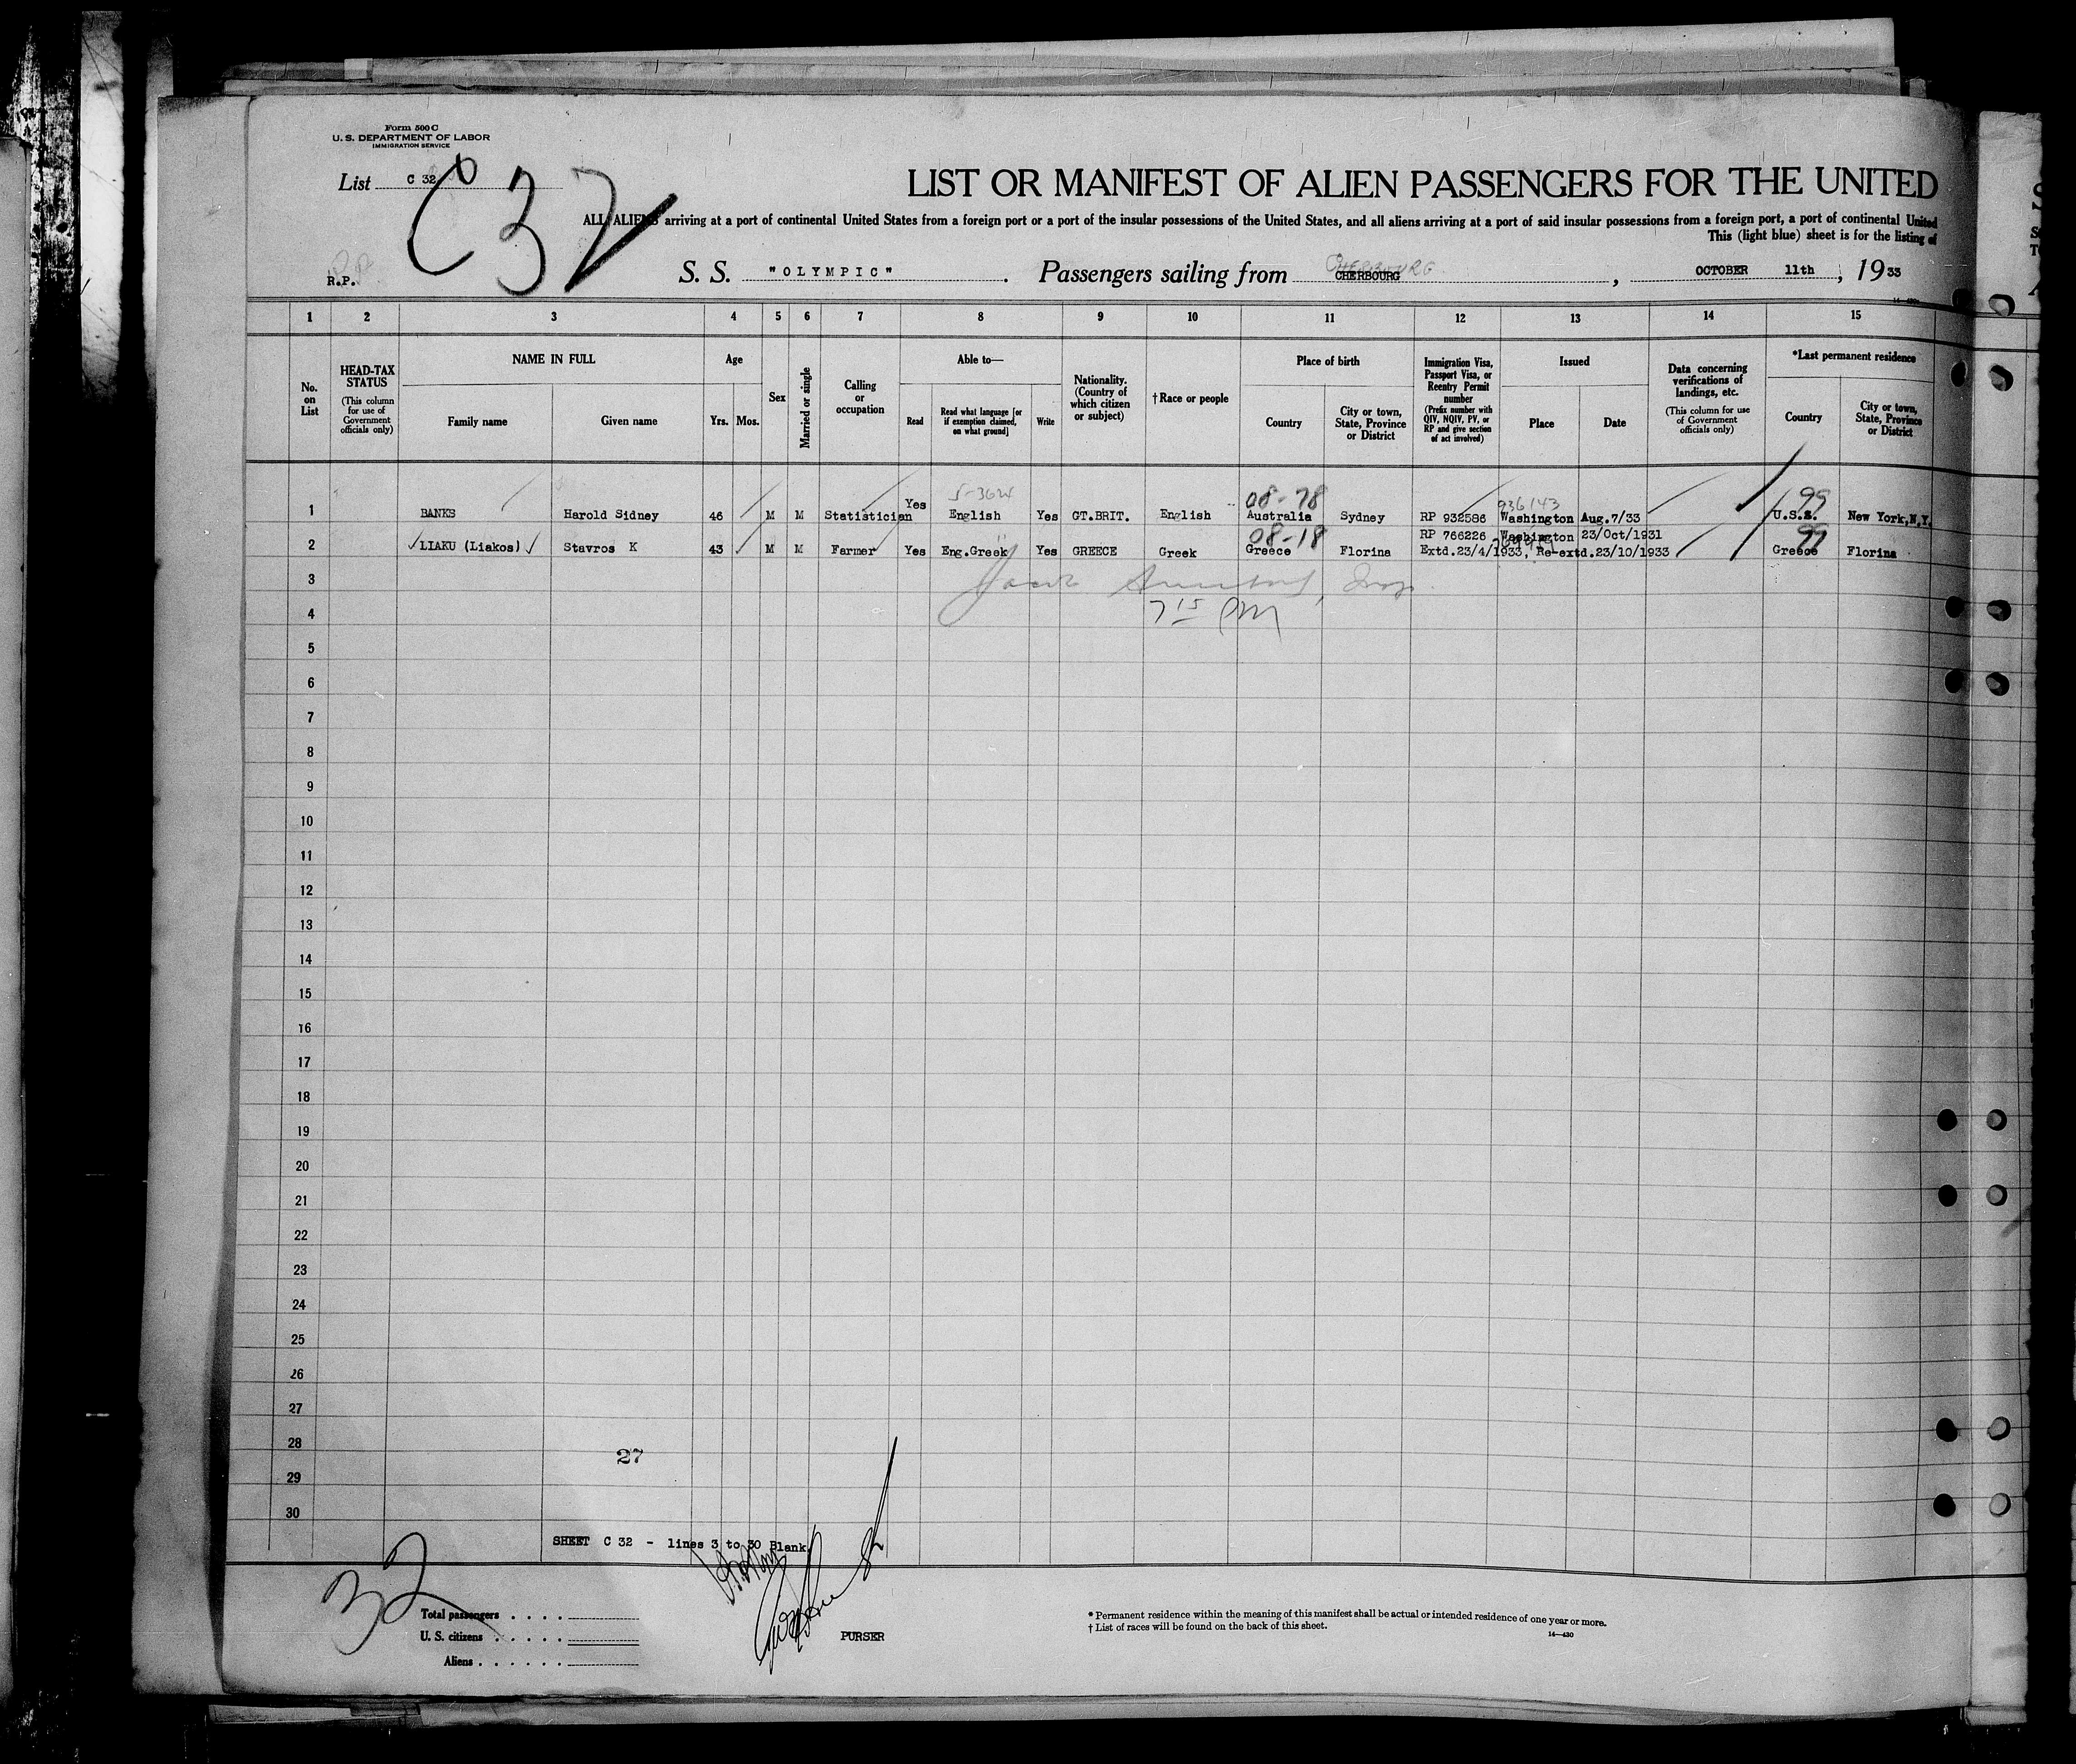 Form 500 C
U. S. DEPARTMENT OF LABOR
IMMIGRATION SERVICE
List C 32
C32
LIST OR MANIFEST OF ALIEN PASSENGERS FOR THE UNITED
ALL ALIENS arriving at a port of continental United States from a foreign port or a port of the insular possessions of the United States, and all aliens arriving at a port of said insular possessions from a foreign port, a port of continental United
This (light blue) sheet is for the listing of
R.P.
S. S. "OLYMPIC". Passengers sailing from CHERBOURG, OCTOBER 11th, 1933
CHERBOURG
1 2 3 4 5 6 7 8 9 10 11 12 13 14 15
No. on List
HEAD-TAX STATUS
(This column for use of Government officials only)
NAME IN FULL
Family name
Given name
Age
Yrs. Mos.
Sex
Married or single
Calling or occupation
Able to—
Read
Read what language [or if exemption claimed, on what ground]
Write
Nationality. (Country of which citizen or subject)
†Race or people
Place of birth
Country
City or town, State, Province or District
Immigration Visa, Passport Visa, or Reentry Permit number
(Prefix number with QIV, NQIV, PV, or RP and give section of act involved)
Issued
Place
Date
Data concerning verifications of landings, etc.
(This column for use of Government officials only)
*Last permanent residence
Country
City or town, State, Province or District
08-78 936143 99
1 BANKS Harold Sidney 46 M M Statistician Yes English Yes GT.BRIT. English Australia Sydney RP 932586 Washington Aug.7/33 U.S.A. New York,N.Y.
08-18 99
RP 766226 Washington 23/Oct/1931
2 LIAKU (Liakos) Stavros K 43 M M Farmer Yes Eng.Greek Yes GREECE Greek Greece Florina Extd.23/4/1933, Re-extd.23/10/1933 Greece Florina
3
7 15 PM
4
5
6
7
8
9
10
11
12
13
14
15
16
17
18
19
20
21
22
23
24
25
26
27
28
27
29
30
SHEET C 32 - lines 3 to 30 Blank
32
Total passengers
U. S. citizens
Aliens
PURSER
* Permanent residence within the meaning of this manifest shall be actual or intended residence of one year or more.
† List of races will be found on the back of this sheet.
14—430